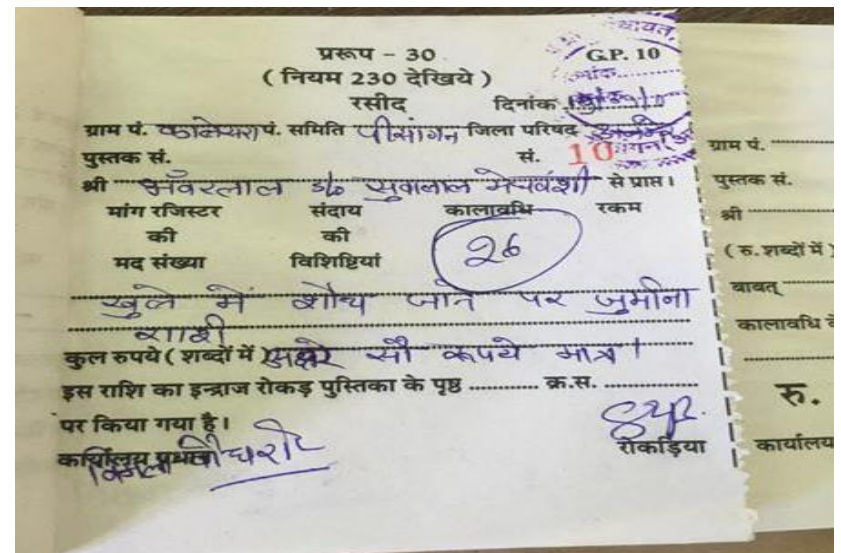 प्ररूप - 30
G.P. 10
( नियम 230 देखिये )
रसीद दिनांक
ग्राम पं. कालेसरा पं. समिति पीसांगन जिला परिषद अजमेर
पुस्तक सं. सं. 10
श्री भँवरलाल s/o सुवालाल मेघवंशी से प्राप्त।
मांग रजिस्टर संदाय कालावधि रकम
की की
मद संख्या विशिष्टियां 26
खुले में शौच जाने पर जुर्माना
राशी
कुल रुपये ( शब्दों में ) सौ रूपये मात्र।
इस राशि का इन्द्राज रोकड़ पुस्तिका के पृष्ठ .......... क्र.स. ................
पर किया गया है।
कार्यालय प्रधान चौधरी
रोकड़िया
ग्राम पं.
पुस्तक सं.
श्री
( रु. शब्दों में )
बावत्
कालावधि
रु.
कार्यालय